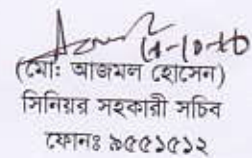 (মোঃ আজমল হোসেন)
সিনিয়র সহকারী সচিব
ফোনঃ ৯৫৫১৫১২